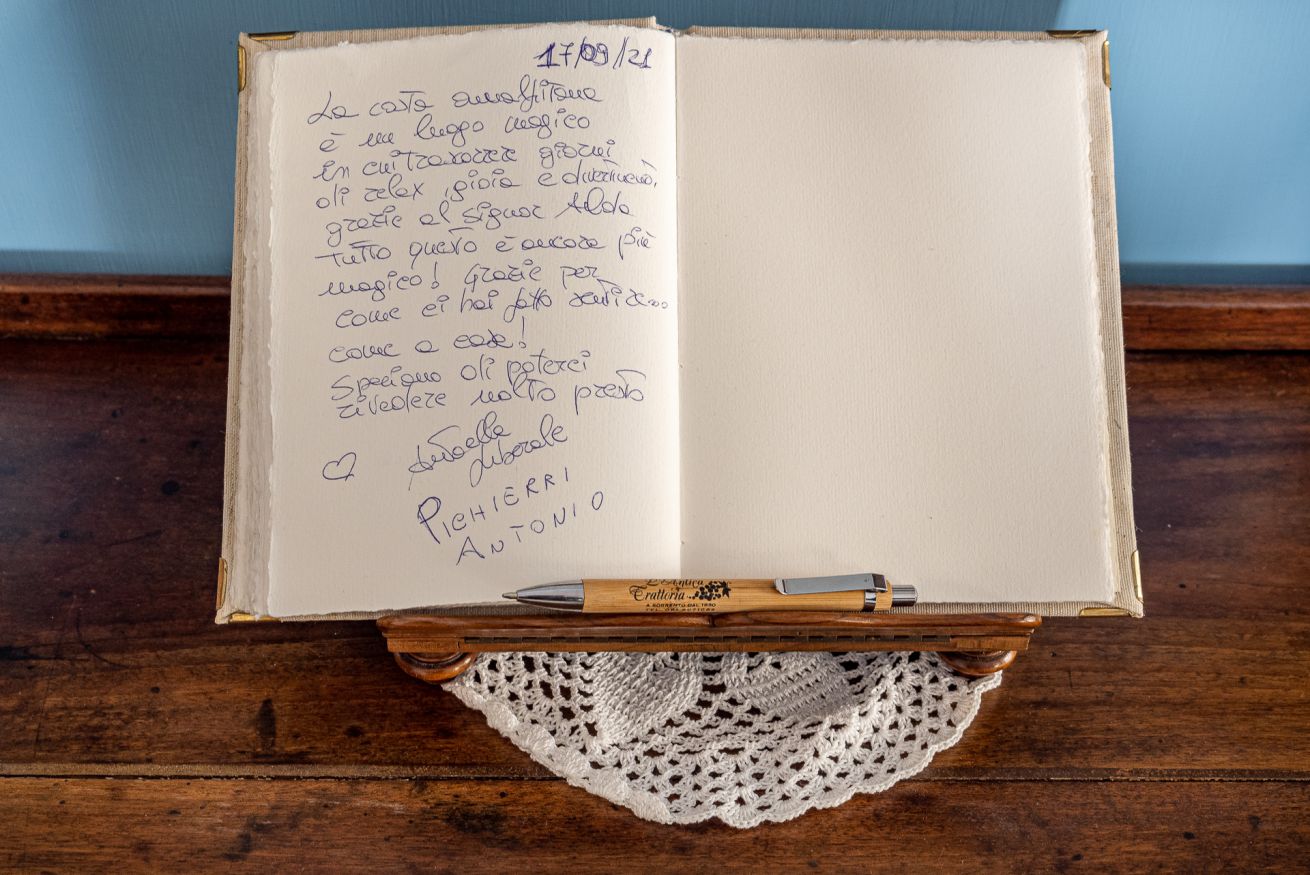 17/09/21
La costa amalfitana
è un luogo magico
in cui trascorrere giorni
di relax, gioia e divertimento,
grazie al signor Aldo
tutto questo è ancora più
magico! Grazie per
come ci hai fatto sentire...
come a casa!
Speriamo di poterci
rivedere molto presto
Liberale
PICHIERRI
ANTONIO
L'Antica
Trattoria
A SORRENTO DAL 1930